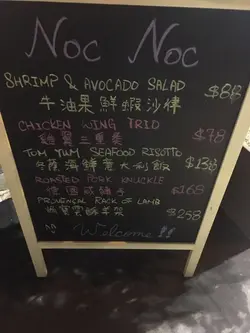 Noc Noc
SHRIMP & AVOCADO SALAD $88
牛油果鮮蝦沙律
CHICKEN WING TRIO $78
雞翼三重奏
TOM YUM SEAFOOD RISOTTO $138
冬蔭海鮮意大利飯
ROASTED PORK KNUCKLE $168
德國咸豬手
PROVENCAL RACK OF LAMB $258
Welcome!!